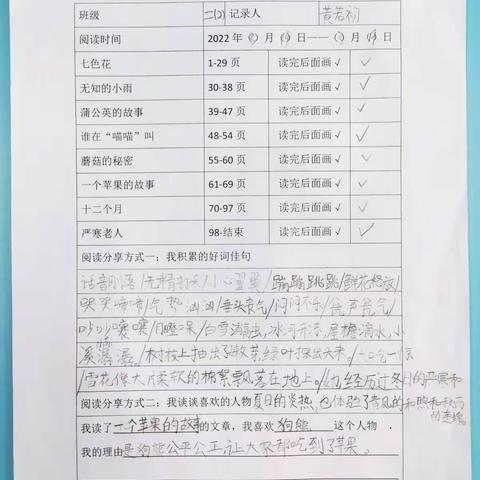 班级 二(2) 记录人 黄若初
阅读时间 2022年 月 日——月 日
七色花 1-29页 读完后面画√ ✓
无知的小雨 30-38页 读完后面画√ ✓
蒲公英的故事 39-47页 读完后面画√ ✓
谁在“喵喵”叫 48-54页 读完后面画√ ✓
蘑菇的秘密 55-60页 读完后面画√ ✓
一个苹果的故事 61-69页 读完后面画√ ✓
十二个月 70-97页 读完后面画√ ✓
严寒老人 98-结束 读完后面画√ ✓
阅读分享方式一：我积累的好词佳句
话音刚落/无精打采/小心翼翼/蹦蹦跳跳/鲜花怒放/
哭哭啼啼/气势汹汹/垂头丧气/闷闷不乐/瓮声瓮气/
吵吵嚷嚷/目瞪口呆/白雪消融,冰河开冻,屋檐滴水,小
溪潺潺。树枝上抽出了嫩芽,绿叶探出头来,/大吃一惊
/雪花像大片柔软的棉絮飘落在地上。/经历过冬日的严寒和
阅读分享方式二：我读谈喜欢的人物 夏日的炎热,也体验了春风的和煦和秋雨
的连绵。
我读了一个苹果的故事的文章，我喜欢 狗熊 这个人物，
我的理由是狗熊公平公正,让大家都吃到了苹果。